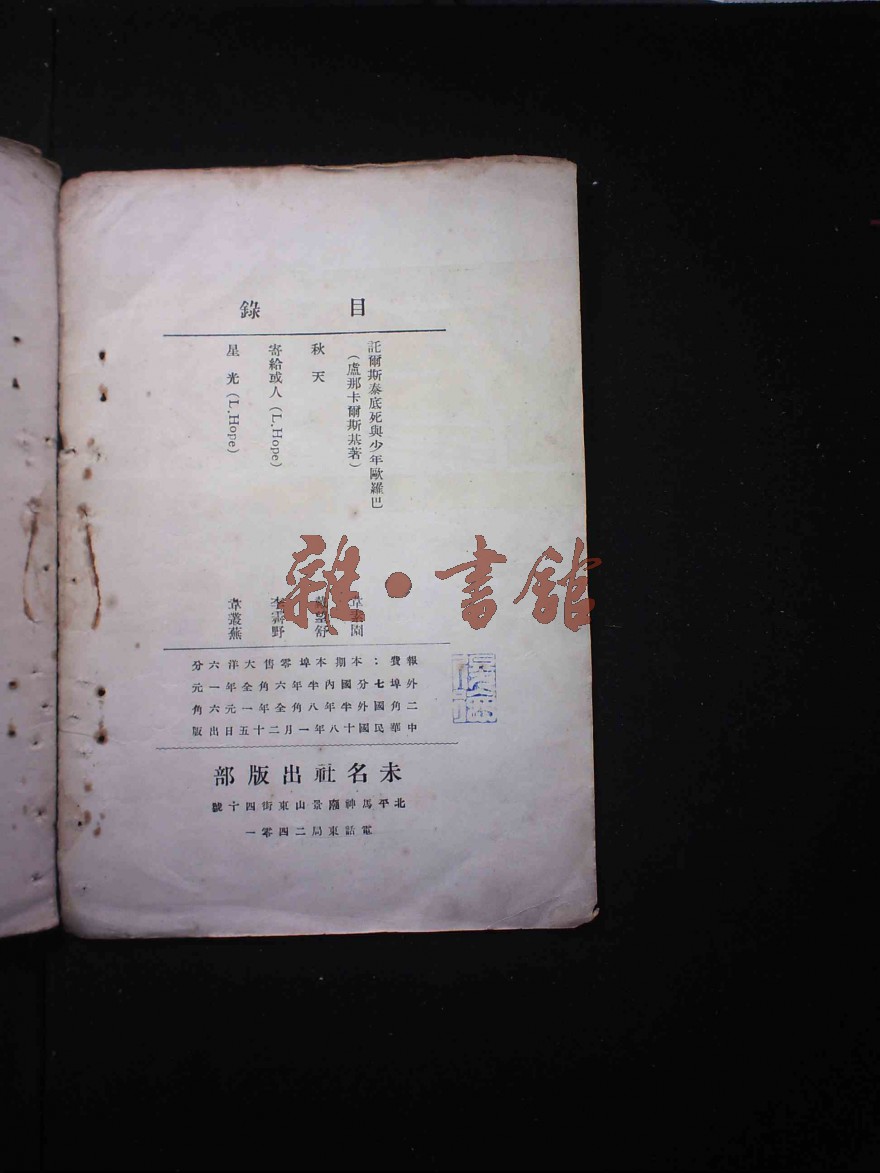 目錄
託爾斯泰底死與少年歐羅巴
(盧那卡爾斯基著)
韋素園
秋天
戴望舒
寄給或人(L.Hope)
李霽野
星光(L.Hope)
韋叢蕪
報費:本期本埠零售大洋六分
外埠七分國內半年六角全年一元
二角國外半年八角全年一元六角
中華民國十八年一月二十五日出版
未名社出版部
北平馬神廟景山東街四十號
電話東局二四零一
雜·書館